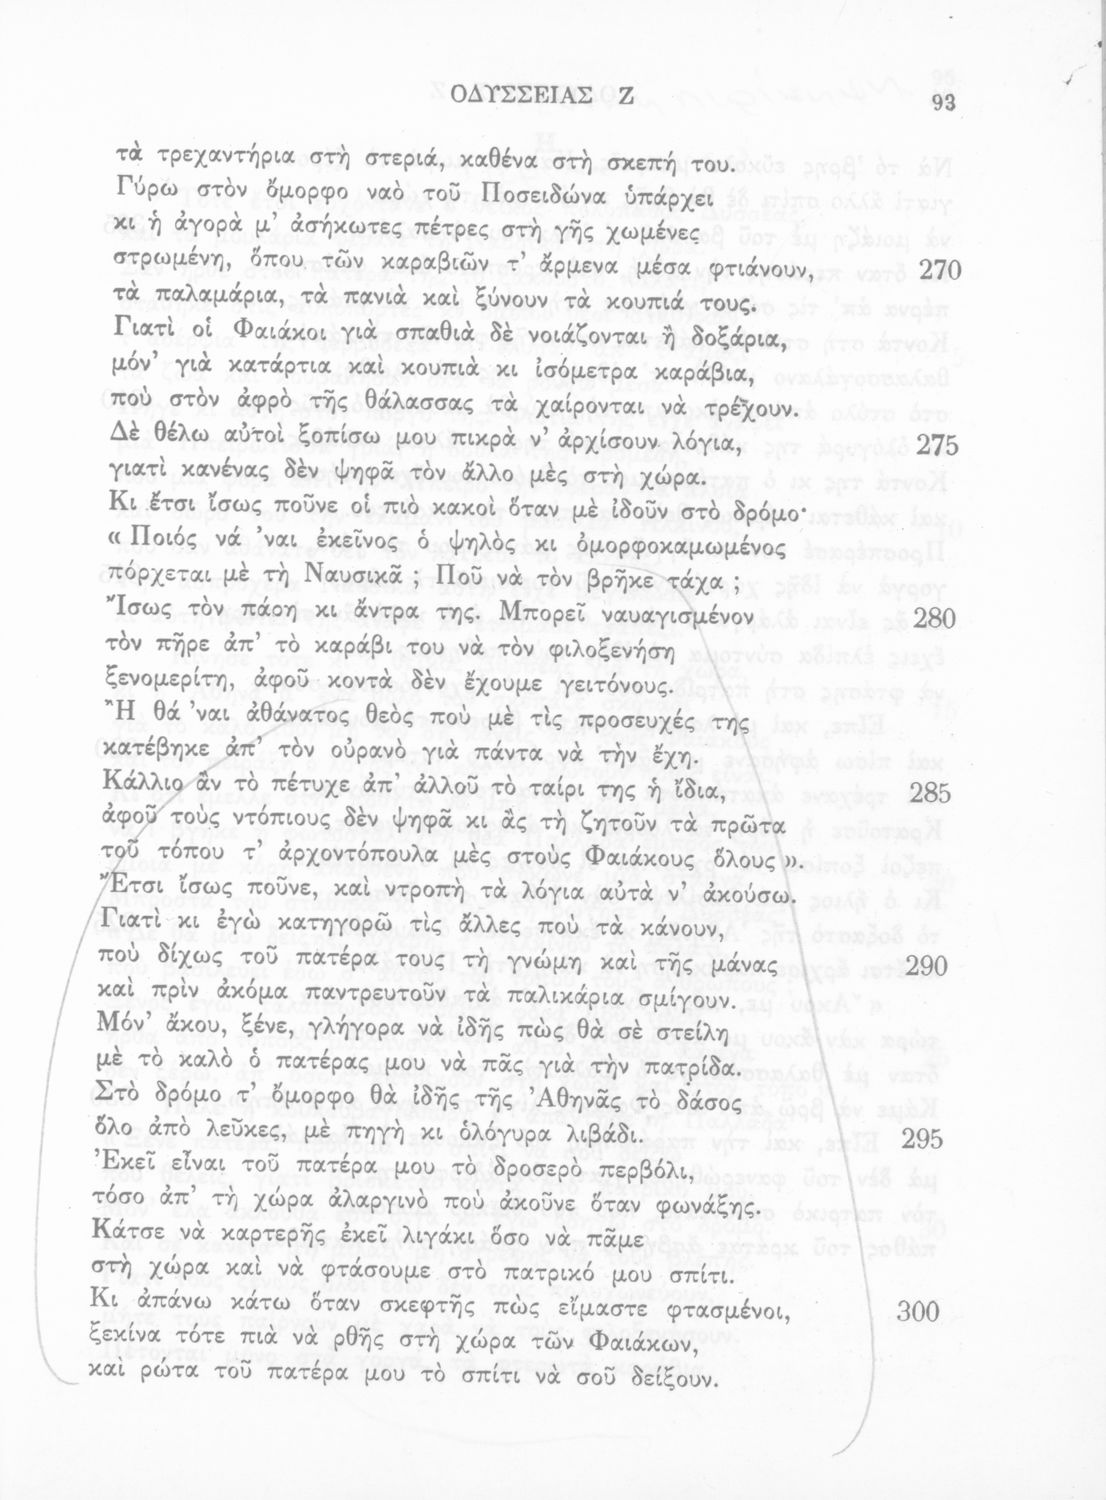 ΟΔΥΣΣΕΙΑΣ Ζ
93
τὰ τρεχαντήρια στὴ στεριά, καθένα στὴ σκεπή του.
Γύρω στὸν ὄμορφο ναὸ τοῦ Ποσειδώνα ὑπάρχει
κι ἡ ἀγορὰ μ' ἀσήκωτες πέτρες στὴ γῆς χωμένες
στρωμένη, ὅπου τῶν καραβιῶν τ' ἄρμενα μέσα φτιάνουν, 270
τὰ παλαμάρια, τὰ πανιὰ καὶ ξύνουν τὰ κουπιά τους.
Γιατὶ οἱ Φαιάκοι γιὰ σπαθιὰ δὲ νοιάζονται ἢ δοξάρια,
μόν' γιὰ κατάρτια καὶ κουπιὰ κι ἰσόμετρα καράβια,
ποὺ στὸν ἀφρὸ τῆς θάλασσας τὰ χαίρονται νὰ τρέχουν.
Δὲ θέλω αὐτοὶ ξοπίσω μου πικρὰ ν' ἀρχίσουν λόγια, 275
γιατὶ κανένας δὲν ψηφᾶ τὸν ἄλλο μὲς στὴ χώρα.
Κι ἔτσι ἴσως ποῦνε οἱ πιὸ κακοὶ ὅταν μὲ ἰδοῦν στὸ δρόμο·
« Ποιός νά 'ναι ἐκεῖνος ὁ ψηλὸς κι ὀμορφοκαμωμένος
πόρχεται μὲ τὴ Ναυσικᾶ ; Ποῦ νὰ τὸν βρῆκε τάχα ;
Ἴσως τὸν πάρη κι ἄντρα της. Μπορεῖ ναυαγισμένον 280
τὸν πῆρε ἀπ' τὸ καράβι του νὰ τὸν φιλοξενήση
ξενομερίτη, ἀφοῦ κοντὰ δὲν ἔχουμε γειτόνους.
Ἢ θά 'ναι ἀθάνατος θεὸς ποὺ μὲ τὶς προσευχές της
κατέβηκε ἀπ' τὸν οὐρανὸ γιὰ πάντα νὰ τὴν ἔχη.
Κάλλιο ἂν τὸ πέτυχε ἀπ' ἀλλοῦ τὸ ταίρι της ἡ ἴδια, 285
ἀφοῦ τοὺς ντόπιους δὲν ψηφᾶ κι ἂς τὴ ζητοῦν τὰ πρῶτα
τοῦ τόπου τ' ἀρχοντόπουλα μὲς στοὺς Φαιάκους ὅλους ».
Ἔτσι ἴσως ποῦνε, καὶ ντροπὴ τὰ λόγια αὐτὰ ν' ἀκούσω.
Γιατὶ κι ἐγὼ κατηγορῶ τὶς ἄλλες ποὺ τὰ κάνουν,
ποὺ δίχως τοῦ πατέρα τους τὴ γνώμη καὶ τῆς μάνας 290
καὶ πρὶν ἀκόμα παντρευτοῦν τὰ παλικάρια σμίγουν.
Μόν' ἄκου, ξένε, γλήγορα νὰ ἰδῆς πὼς θὰ σὲ στείλη
μὲ τὸ καλὸ ὁ πατέρας μου νὰ πᾶς γιὰ τὴν πατρίδα.
Στὸ δρόμο τ' ὄμορφο θὰ ἰδῆς τῆς Ἀθηνᾶς τὸ δάσος
ὅλο ἀπὸ λεῦκες, μὲ πηγὴ κι ὁλόγυρα λιβάδι. 295
Ἐκεῖ εἶναι τοῦ πατέρα μου τὸ δροσερὸ περβόλι,
τόσο ἀπ' τὴ χώρα ἀλαργινὸ ποὺ ἀκοῦνε ὅταν φωνάξης.
Κάτσε νὰ καρτερῆς ἐκεῖ λιγάκι ὅσο νὰ πᾶμε
στὴ χώρα καὶ νὰ φτάσουμε στὸ πατρικό μου σπίτι.
Κι ἀπάνω κάτω ὅταν σκεφτῆς πὼς εἴμαστε φτασμένοι, 300
ξεκίνα τότε πιὰ νὰ ρθῆς στὴ χώρα τῶν Φαιάκων,
καὶ ρώτα τοῦ πατέρα μου τὸ σπίτι νὰ σοῦ δείξουν.